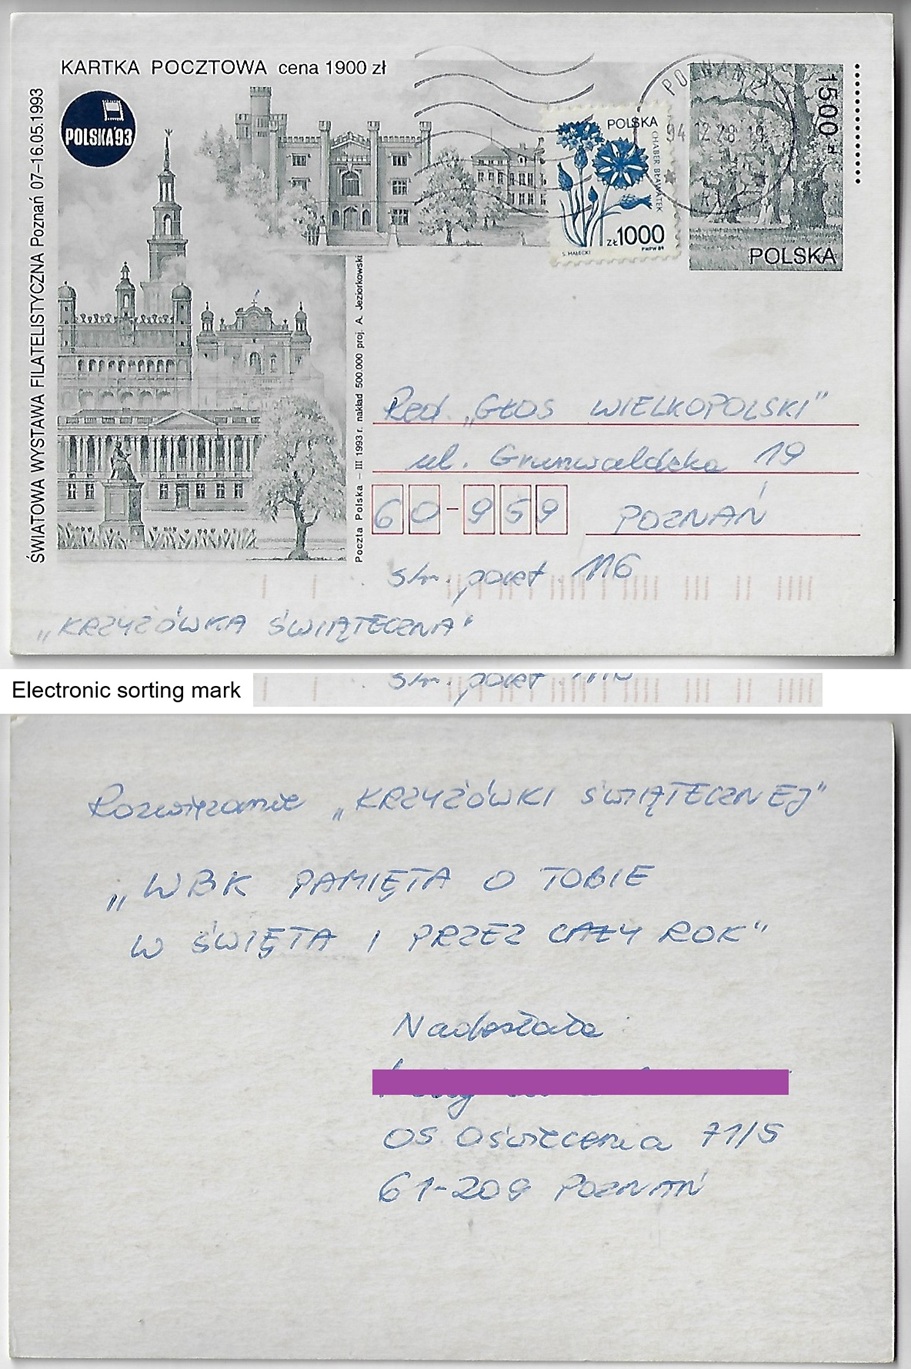 KARTKA POCZTOWA cena 1900 zł
ŚWIATOWA WYSTAWA FILATELISTYCZNA Poznań 07–16.05.1993
POLSKA'93
POZNAŃ
94 12 28
POLSKA
CHABER BŁAWATEK
ZŁ 1000
S. MAŁECKI
PWPW 89
1500 zł
POLSKA
Poczta Polska – III 1993 r. nakład 500.000 proj. A. Jeziorkowski
Red. „GŁOS WIELKOPOLSKI"
ul. Grunwaldzka 19
60-959 POZNAŃ
skr. poczt 116
„KRZYŻÓWKA ŚWIĄTECZNA"
Electronic sorting mark
skr. poczt
Rozwiązanie „KRZYŻÓWKI ŚWIĄTECZNEJ"
„WBK PAMIĘTA O TOBIE
W ŚWIĘTA I PRZEZ CAŁY ROK"
Nadesłała
OS Oświecenia 71/5
61-209 POZNAŃ